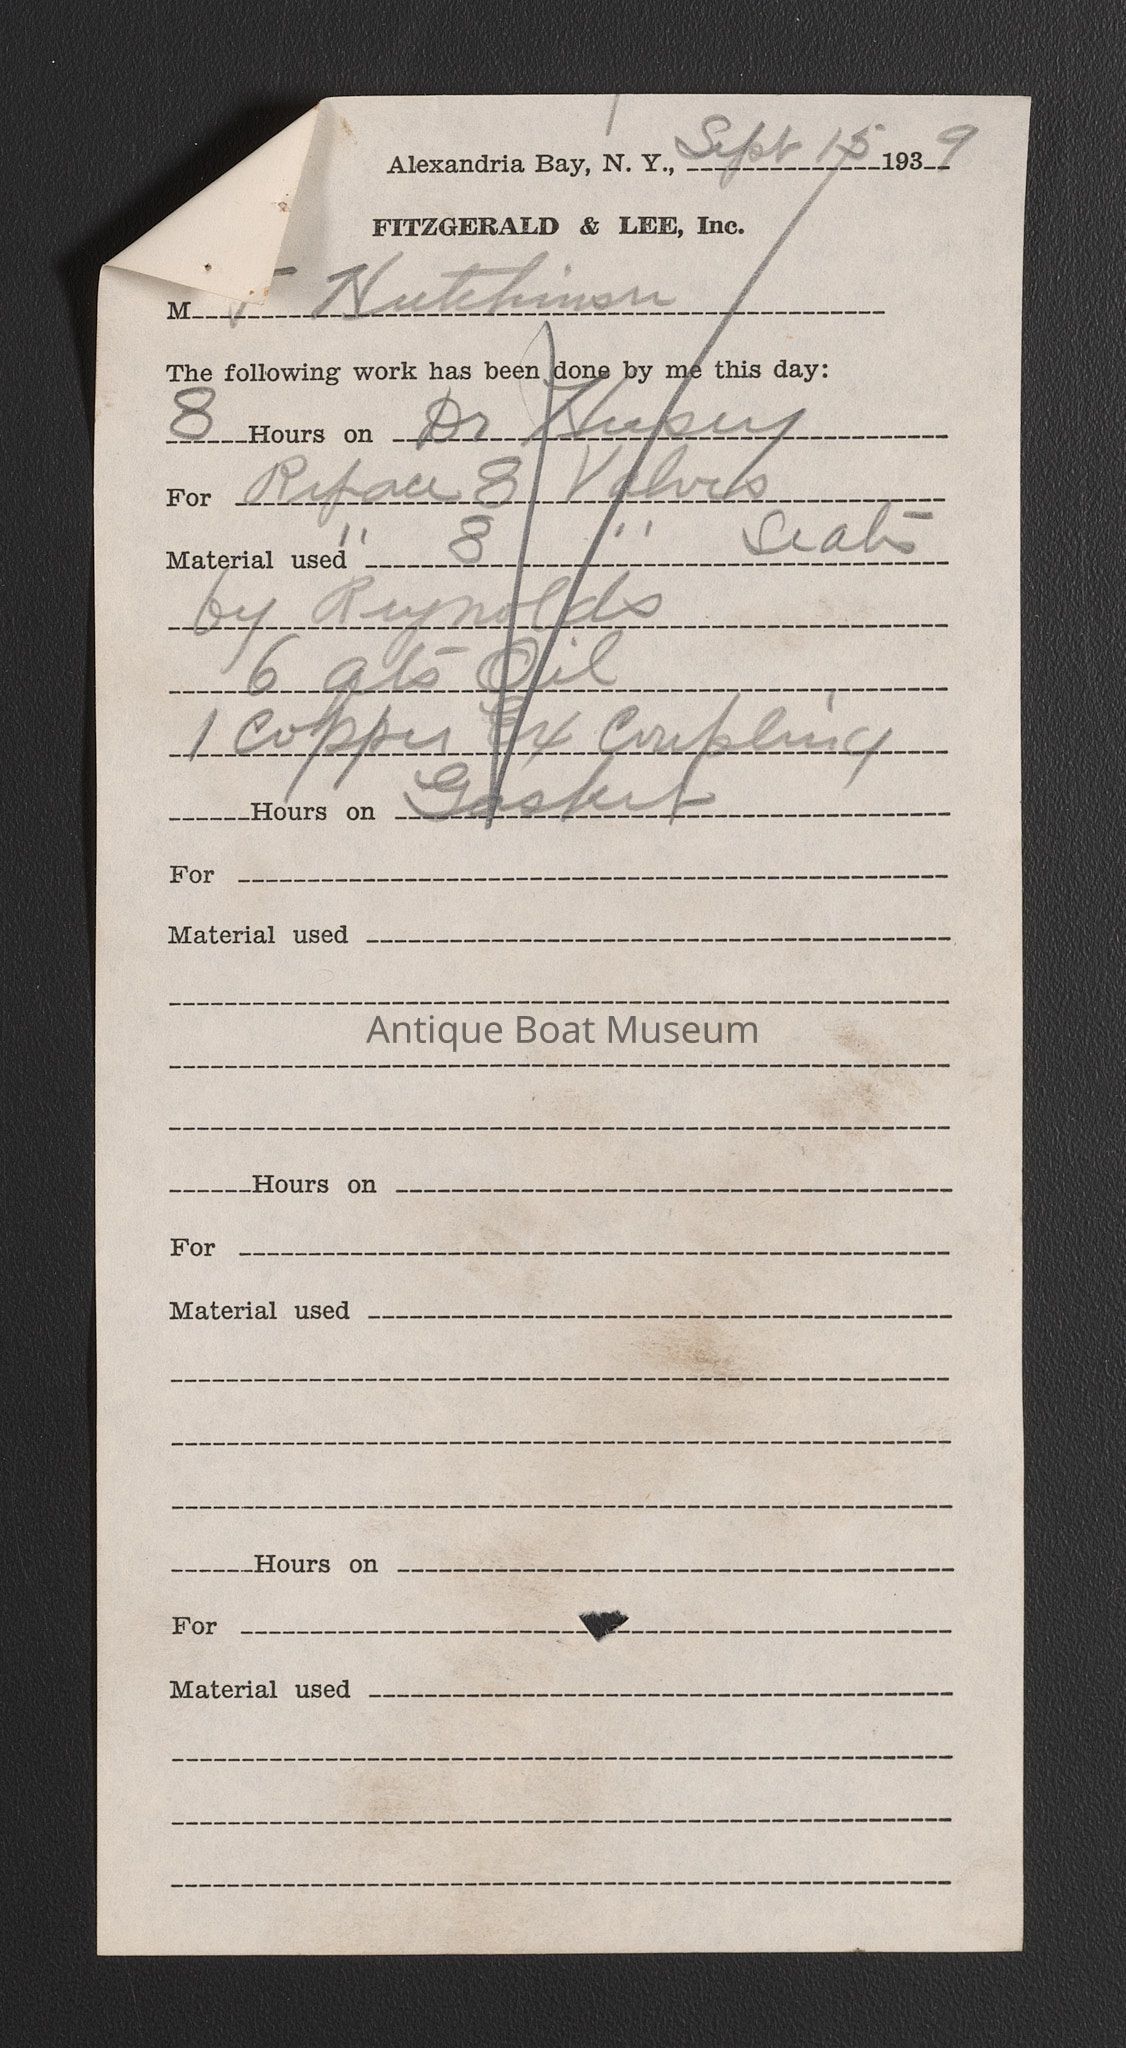 Alexandria Bay, N. Y., Sept 15 1939
FITZGERALD & LEE, Inc.
Mr Hutchinson
The following work has been done by me this day:
8 Hours on Dr
For Reface 8 Valves
Material used " 8 " Seats
by Reynolds
6 qts Oil
1 Copper Ex Coupling
Hours on Gasket
For
Material used
Antique Boat Museum
Hours on
For
Material used
Hours on
For
Material used